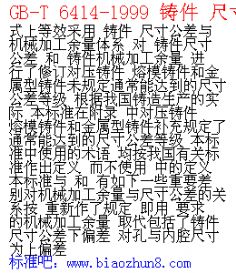 GB-T 6414-1999 铸件 尺寸
式上等效采用 铸件 尺寸公差与
机械加工余量体系 对 铸件尺寸
公差 和 铸件机械加工余量 进
行了修订对压铸件 熔模铸件和金
属型铸件未规定通常能达到的尺寸
公差等级 根据我国铸造生产的实
际 本标准在附录 中对压铸件
熔模铸件和金属型铸件补充规定了
通常能达到的尺寸公差等级 本标
准中使用的术语 均按我国有关标
准作出定义 而不使用 中的定义
本标准与 和 有如下一些重要差
别对机械加工余量与尺寸公差的关
系按 重新作了规定 即用 要求
的机械加工余量 取代包括了铸件
尺寸公差下偏差 对孔与内腔尺寸
为上偏差
标准吧：www.biaozhun8.com